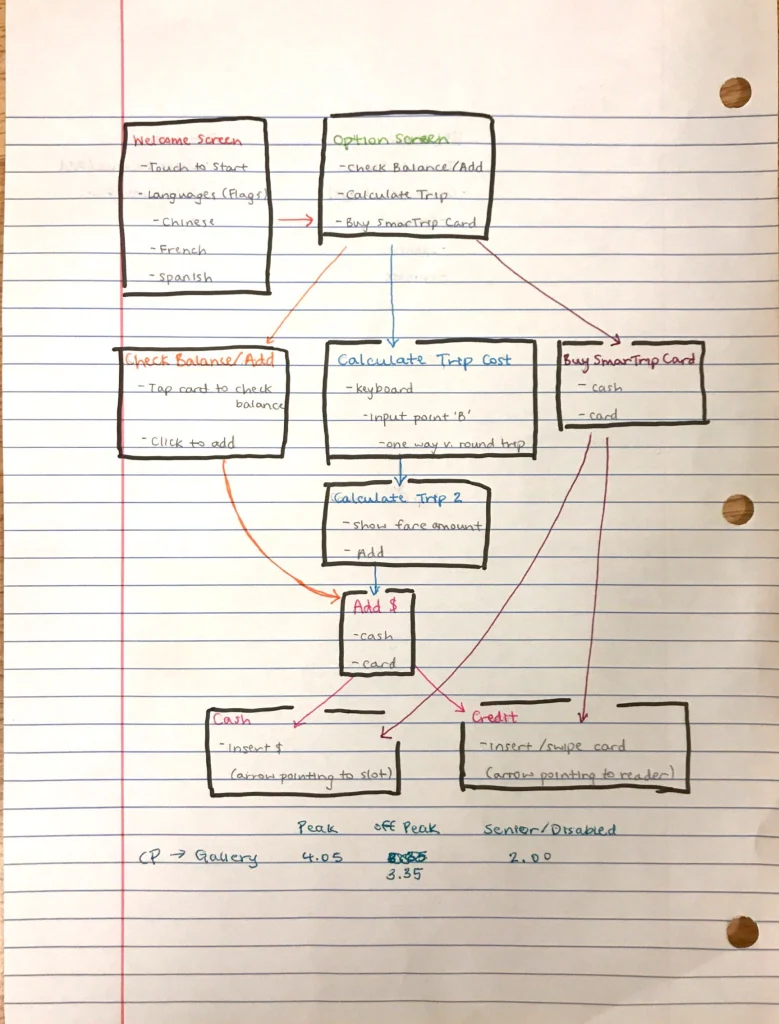 Welcome Screen
- Touch to Start
- Languages (Flags)
- Chinese
- French
- Spanish
Option Screen
- Check Balance/Add
- Calculate Trip
- Buy SmarTrip Card
Check Balance/Add
- Tap card to check
balance
- Click to add
Calculate Trip Cost
- Keyboard
- Input point 'B'
- one way v. round trip
Buy SmarTrip Card
- cash
- card
Calculate Trip 2
- show fare amount
- Add
Add $
- cash
- card
Cash
- Insert $
(arrow pointing to slot)
Credit
- Insert/swipe card
(arrow pointing to reader)
Peak off Peak Senior/Disabled
CP → Gallery 4.05 2.00
3.35